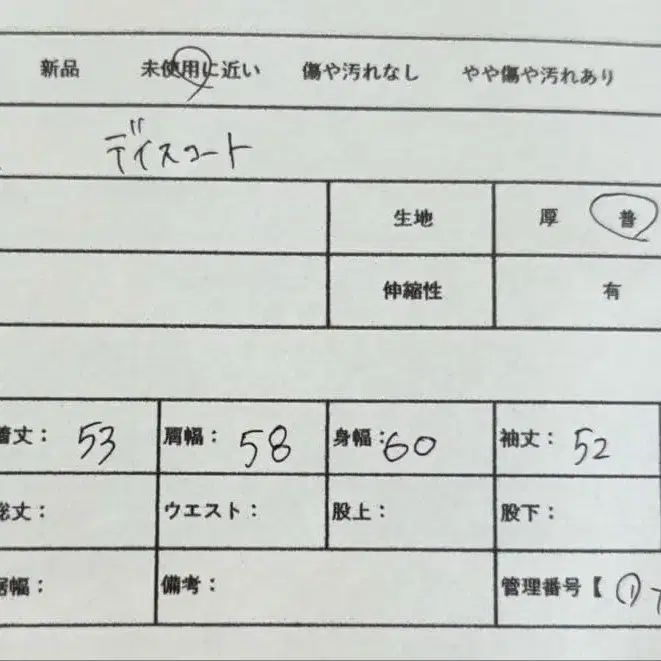 新品 未使用に近い 傷や汚れなし やや傷や汚れあり
ディスコート
生地 厚 普
伸縮性 有
着丈： 53 肩幅： 58 身幅： 60 袖丈： 52
総丈： ウエスト： 股上： 股下：
裾幅： 備考： 管理番号【 ①